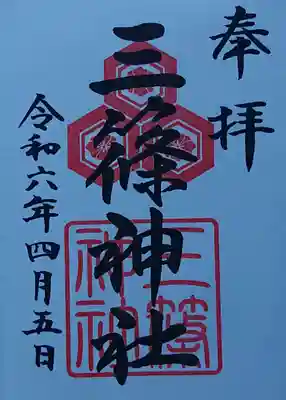 奉拝
三篠神社
三篠神社
令和六年四月五日